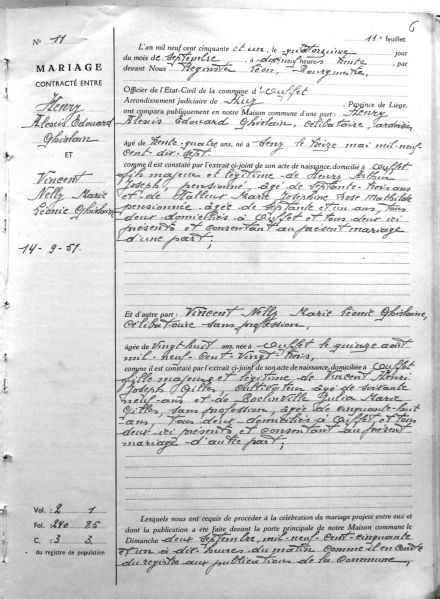 6
N° 11
11e feuillet
MARIAGE
CONTRACTÉ ENTRE
Henry
Alexis Edouard
Ghislain
ET
Vincent
Nelly Marie
Léonie Ghislaine
14-9-51.
L'an mil neuf cent cinquante et un, le quatorzième jour
du mois de septembre, à dix-neuf heures trente, par
devant Nous Léon, Bourgmestre,
Officier de l'Etat-Civil de la commune d'Ouffet
Arrondissement judiciaire de Huy, Province de Liège,
ont comparu publiquement en notre Maison commune d'une part: Henry
Alexis Edouard Ghislain, célibataire, ardoisier,
âgé de trente-quatre ans, né à le treize mai mil-neuf
cent-dix-sept,
comme il est constaté par l'extrait ci-joint de son acte de naissance, domicilié à Ouffet
fils majeur et légitime de Henry Arthur
Joseph, pensionné, âgé de septante-trois ans
et de Marie Joséphine Rose Mathilde
pensionnée âgée de septante et un ans, tous
deux domiciliés à Ouffet et tous deux ici
présents et consentant au présent mariage
d'une part;
Et d'autre part: Vincent Nelly Marie Léonie Ghislaine,
célibataire sans profession,
âgée de vingt-huit ans, née à Ouffet le quinze août
mil-neuf-cent-vingt-trois,
comme il est constaté par l'extrait ci-joint de son acte de naissance, domiciliée à Ouffet
fille majeure et légitime de Vincent Henri
Joseph Gilles, cultivateur âgé de soixante
neuf-ans et de Julia Marie
Gilles, sans profession, âgée de cinquante-huit
ans, tous deux domiciliés à Ouffet et tous
deux ici présents et consentant au présent
mariage d'autre part;
Vol. : 2 1
Fol. 240 85
C. : 3 3.
du registre de population
Lesquels nous ont requis de procéder à la célébration du mariage projeté entre eux et
dont la publication a été faite devant la porte principale de notre Maison commune le
Dimanche deux septembre, mil-neuf-cent-cinquante
et un à dix heures du matin comme il en conste
du registre aux publications de la Commune,